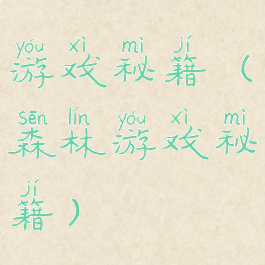 yóu xì mì jí
游戏秘籍(
sēn lín yóu xì mì
森林游戏秘
jí
籍)